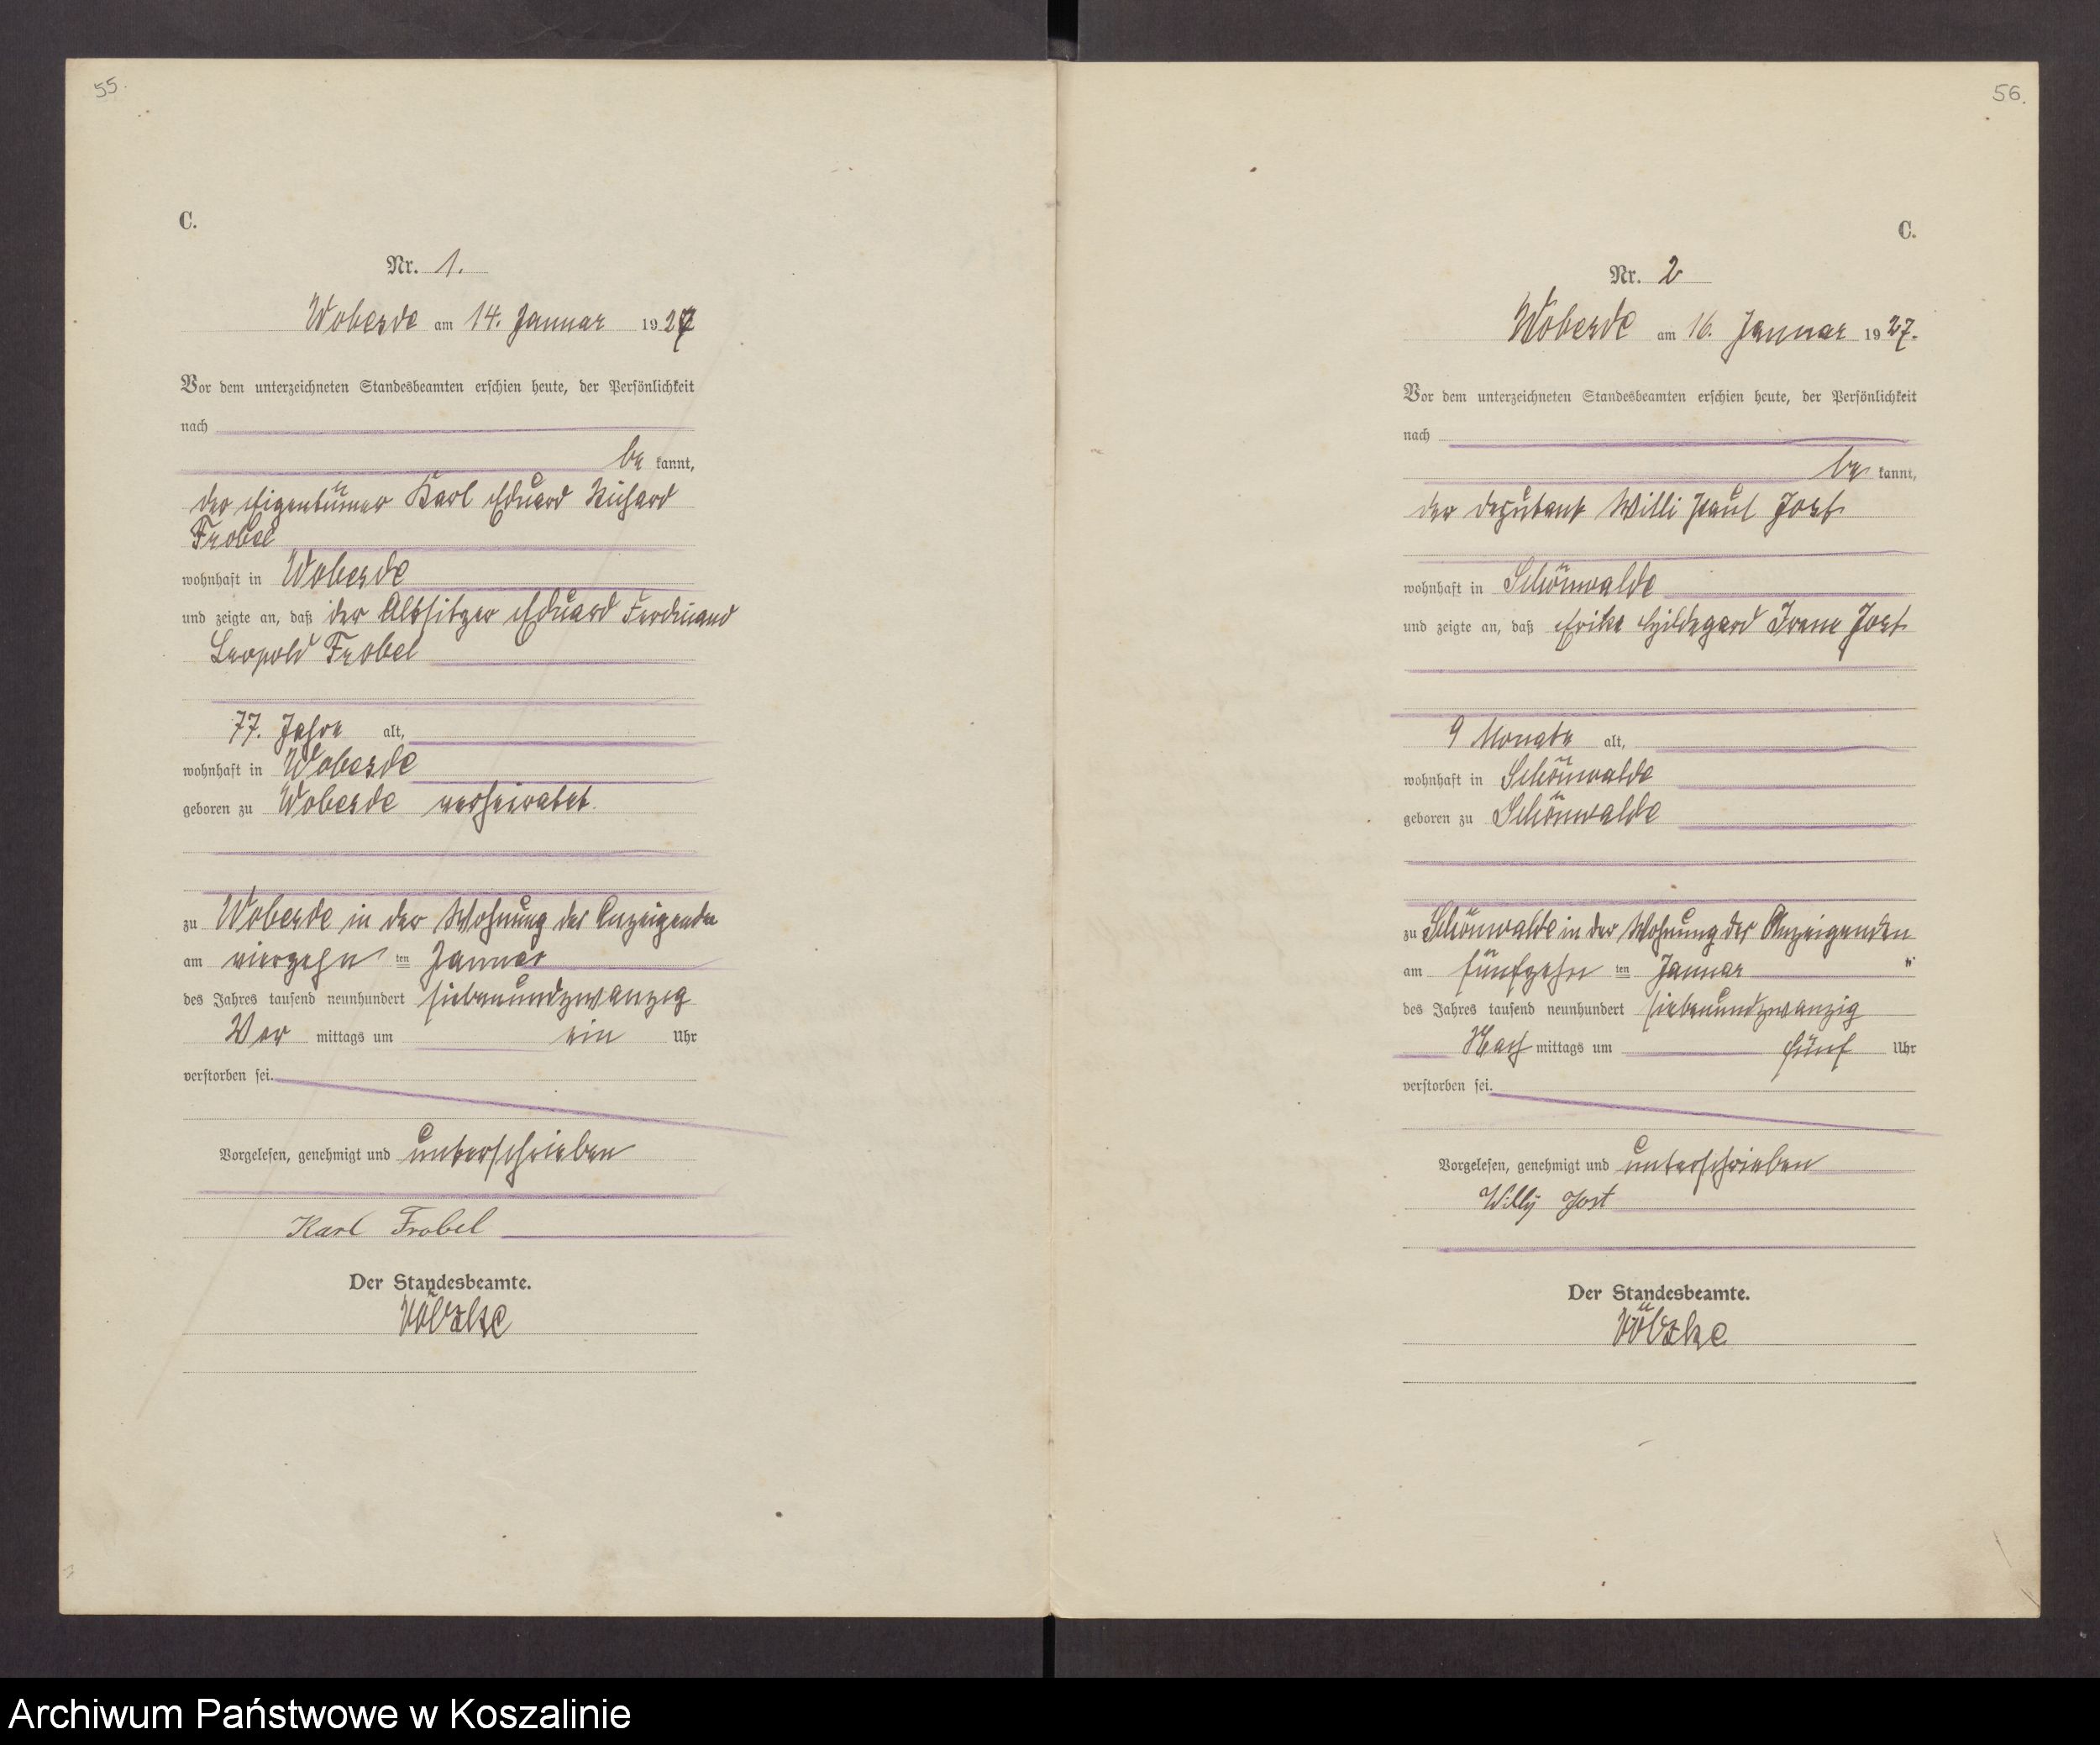 55.
C.
Nr. 1.
Woberde am 14. Januar 1927
Vor dem unterzeichneten Standesbeamten erschien heute, der Persönlichkeit
nach
be kannt,
der Eigentümer Karl Eduard Richard
Frobel
wohnhaft in Woberde
und zeigte an, daß der Altsitzer Eduard Ferdinand
Leopold Frobel
77. Jahre alt,
wohnhaft in Woberde
geboren zu Woberde verheiratet.
zu Woberde in der Wohnung des Anzeigenden
am vierzehn ten Januar
des Jahres tausend neunhundert siebenundzwanzig
Vor mittags um ein Uhr
verstorben sei.
Vorgelesen, genehmigt und unterschrieben
Karl Frobel
Der Standesbeamte.
56.
C.
Nr. 2
Woberde am 16. Januar 1927.
Vor dem unterzeichneten Standesbeamten erschien heute, der Persönlichkeit
nach
be kannt,
der Deputant Willi Paul Jost
wohnhaft in Schönwalde
und zeigte an, daß Erika Hildegard Irene Jost
9 Monate alt,
wohnhaft in Schönwalde
geboren zu Schönwalde
zu Schönwalde in der Wohnung des Anzeigenden
am fünfzehn ten Januar
des Jahres tausend neunhundert siebenundzwanzig
Nach mittags um fünf Uhr
verstorben sei.
Vorgelesen, genehmigt und unterschrieben
Willy Jost
Der Standesbeamte.
Archiwum Państwowe w Koszalinie